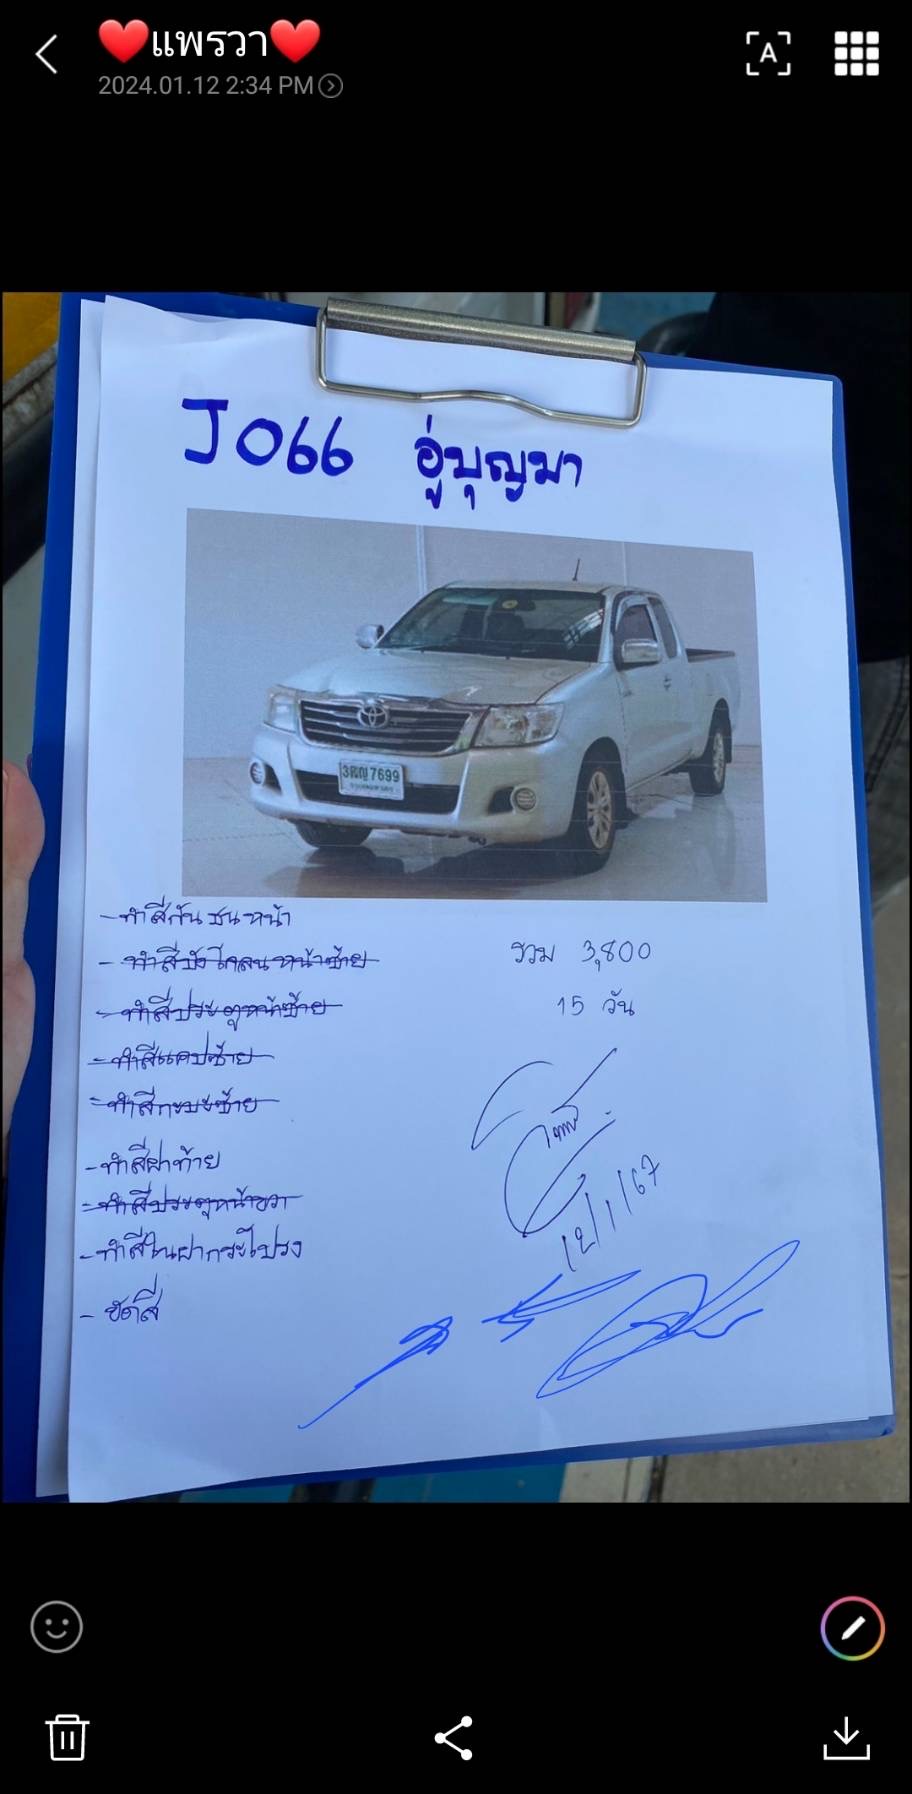 ❤️แพรวา❤️
2024.01.12 2:34 PM
A
J066 อู่บุญมา
7699
- ทำสีกันชนหน้า
- ทำสีบังโคลนหน้าซ้าย
- ทำสีประตูหน้าซ้าย
- ทำสีแคปซ้าย
- ทำสีกะบะซ้าย
- ทำสีฝาท้าย
- ทำสีประตูหน้าขวา
- ทำสีในฝากระโปรง
- ขัดสี
รวม 3,800
15 วัน
12/1/67